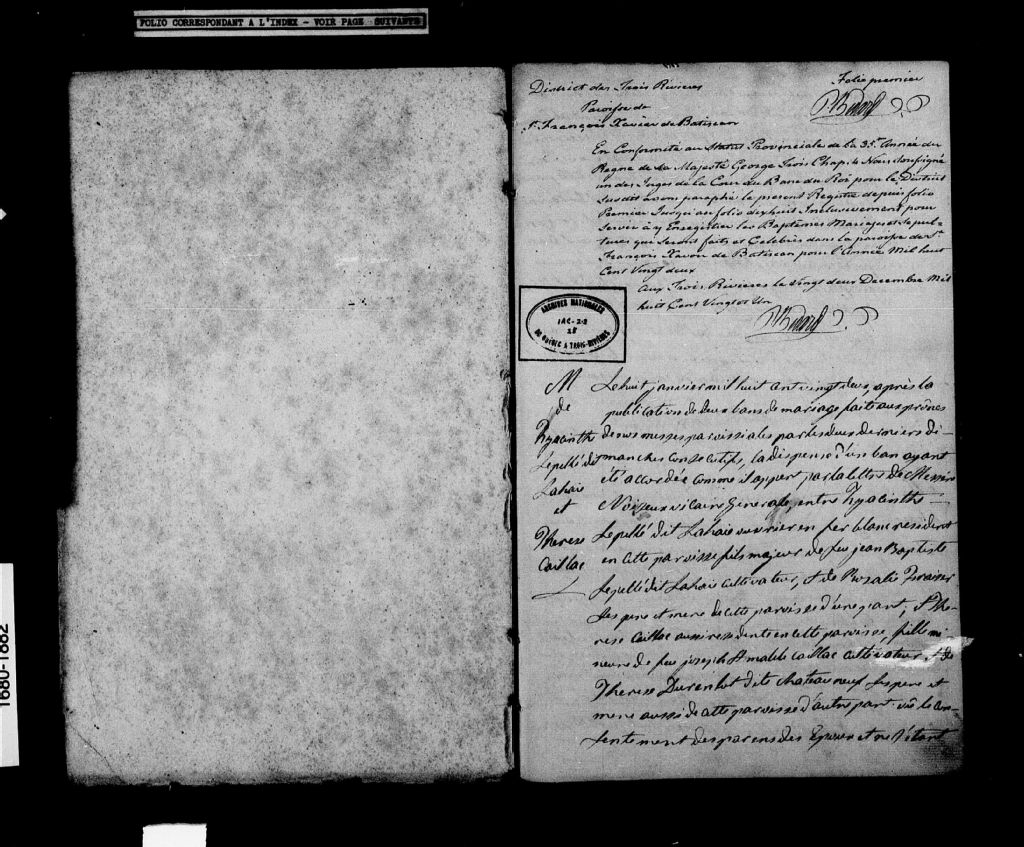 FOLIO CORRESPONDANT A L'INDEX - VOIR PAGE SUIVANTE
District des Trois Rivieres
Paroisse de
St. François Xavier de Batiscan
Folio premier
En Conformité au Statut Provinciale de la 35e. Année du
Regne de Sa Majesté George Trois Chap. 4 Nous Soussigné
un des Juges de la Cour du Banc du Roi pour le District
susdit avons paraphé le present Registre depuis folio
Premier Jusqu'au folio dixhuit Inclusivement pour
Servir à y Enregistrer les Baptêmes Mariages et Sepul-
tures qui seront faits et Celebrés dans la paroisse de St.
François Xavier de Batiscan pour l'Année Mil huit
Cent Vingt deux
Aux Trois Rivieres le Vingt deux Decembre Mil
huit Cent Vingt et Un
ARCHIVES NATIONALES
DU QUÉBEC A TROIS-RIVIÈRES
M
de
Hyacinthe
Lepellé dit
Lahaie
et
Therese
Caillac
Le huit janvier mil huit cent vingt deux, après la
publication de deux bans de mariage faite aux prônes
de nos messes paroissiales par les deux derniers di-
manches consecutifs, la dispense d'un ban ayant
été accordée comme il appert par la lettre de Messire
Noiseux vicaire general, entre Hyacinthe
Lepellé dit Lahaie ouvrier en fer blanc resident
en cette paroisse fils majeur de feu jean Baptiste
Lepellé dit Lahaie cultivateur, et de Rosalie
Ses pere et mere de cette paroisse d'une part; et The-
rese Caillac aussi residente en cette paroisse, fille mi-
neure de feu joseph Amable Caillac cultivateur et de
Therese dite Chateauneuf Ses pere et
mere aussi de cette paroisse d'autre part vû le con-
sentement des parens des Epoux et ne s'étant
1680-1882